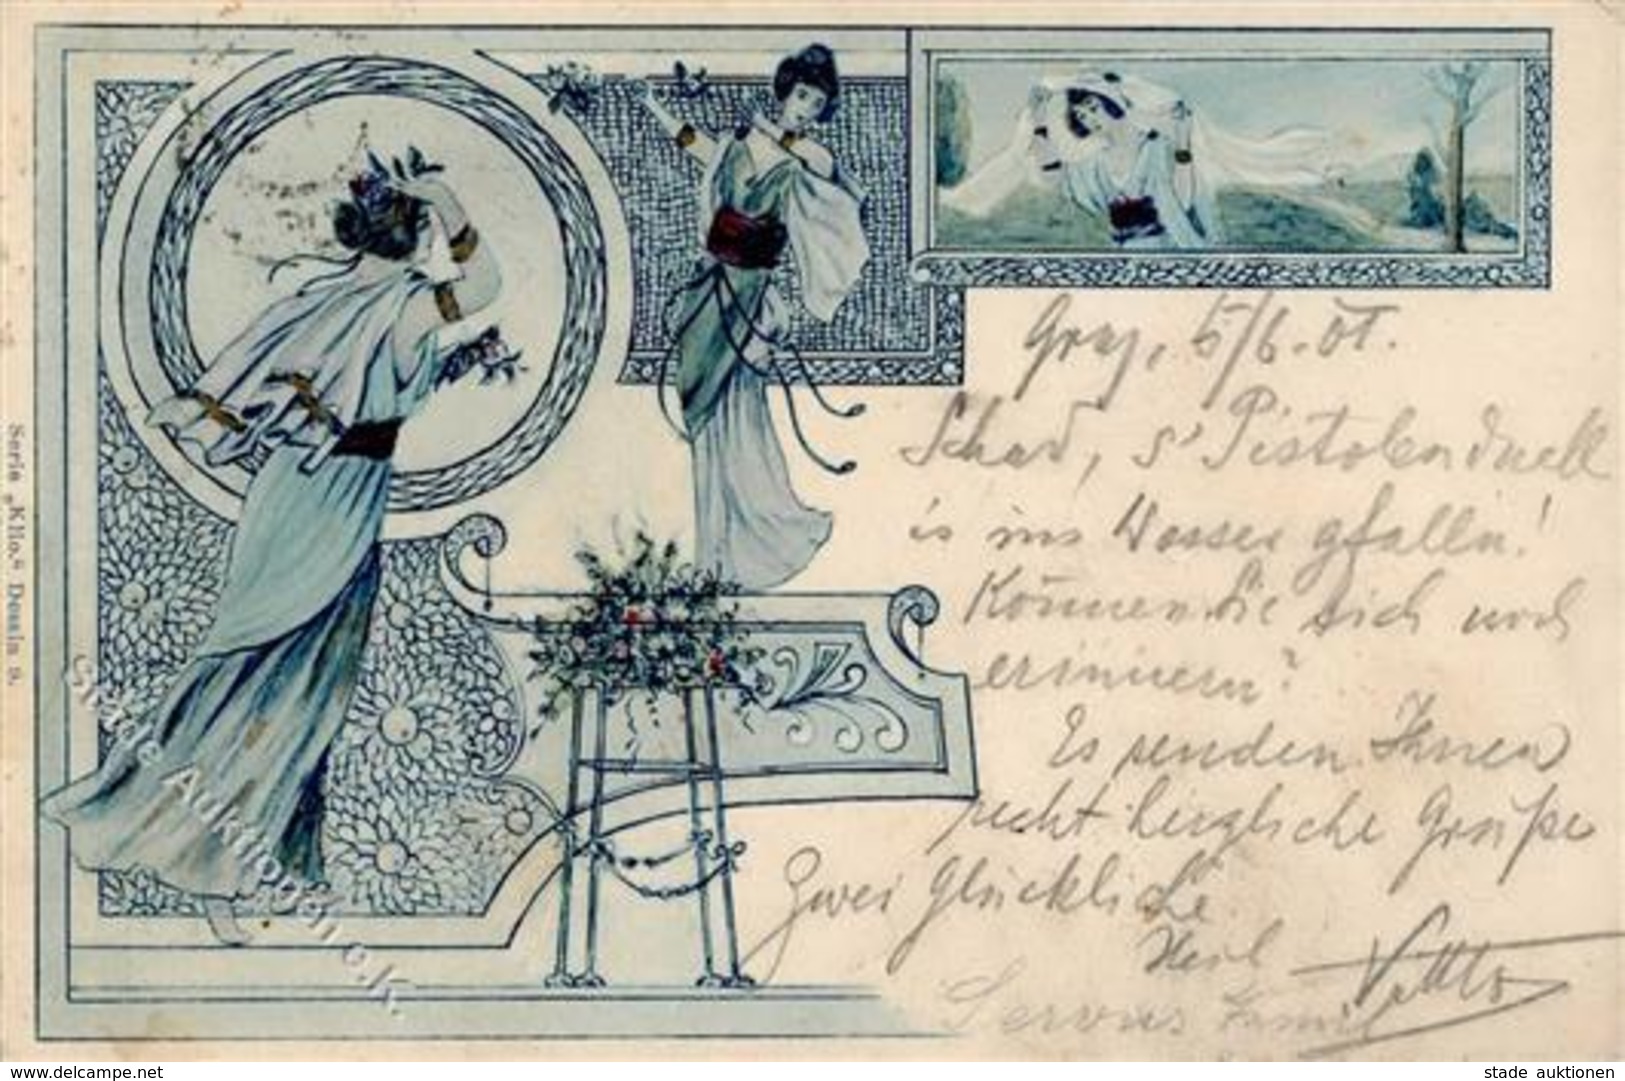 Graz, 5/6. 01.
Schad, s' Pistolenduell
is ins Wasser gfallen!
Können Sie sich noch
erinnern?
Es senden Ihnen
recht herzliche Grüße
Zwei Glückliche.
Heil
Servus
Serie „Klio.“ Dessin 9.
Stade Auktionen e.K.
delcampe.net
stade auktionen